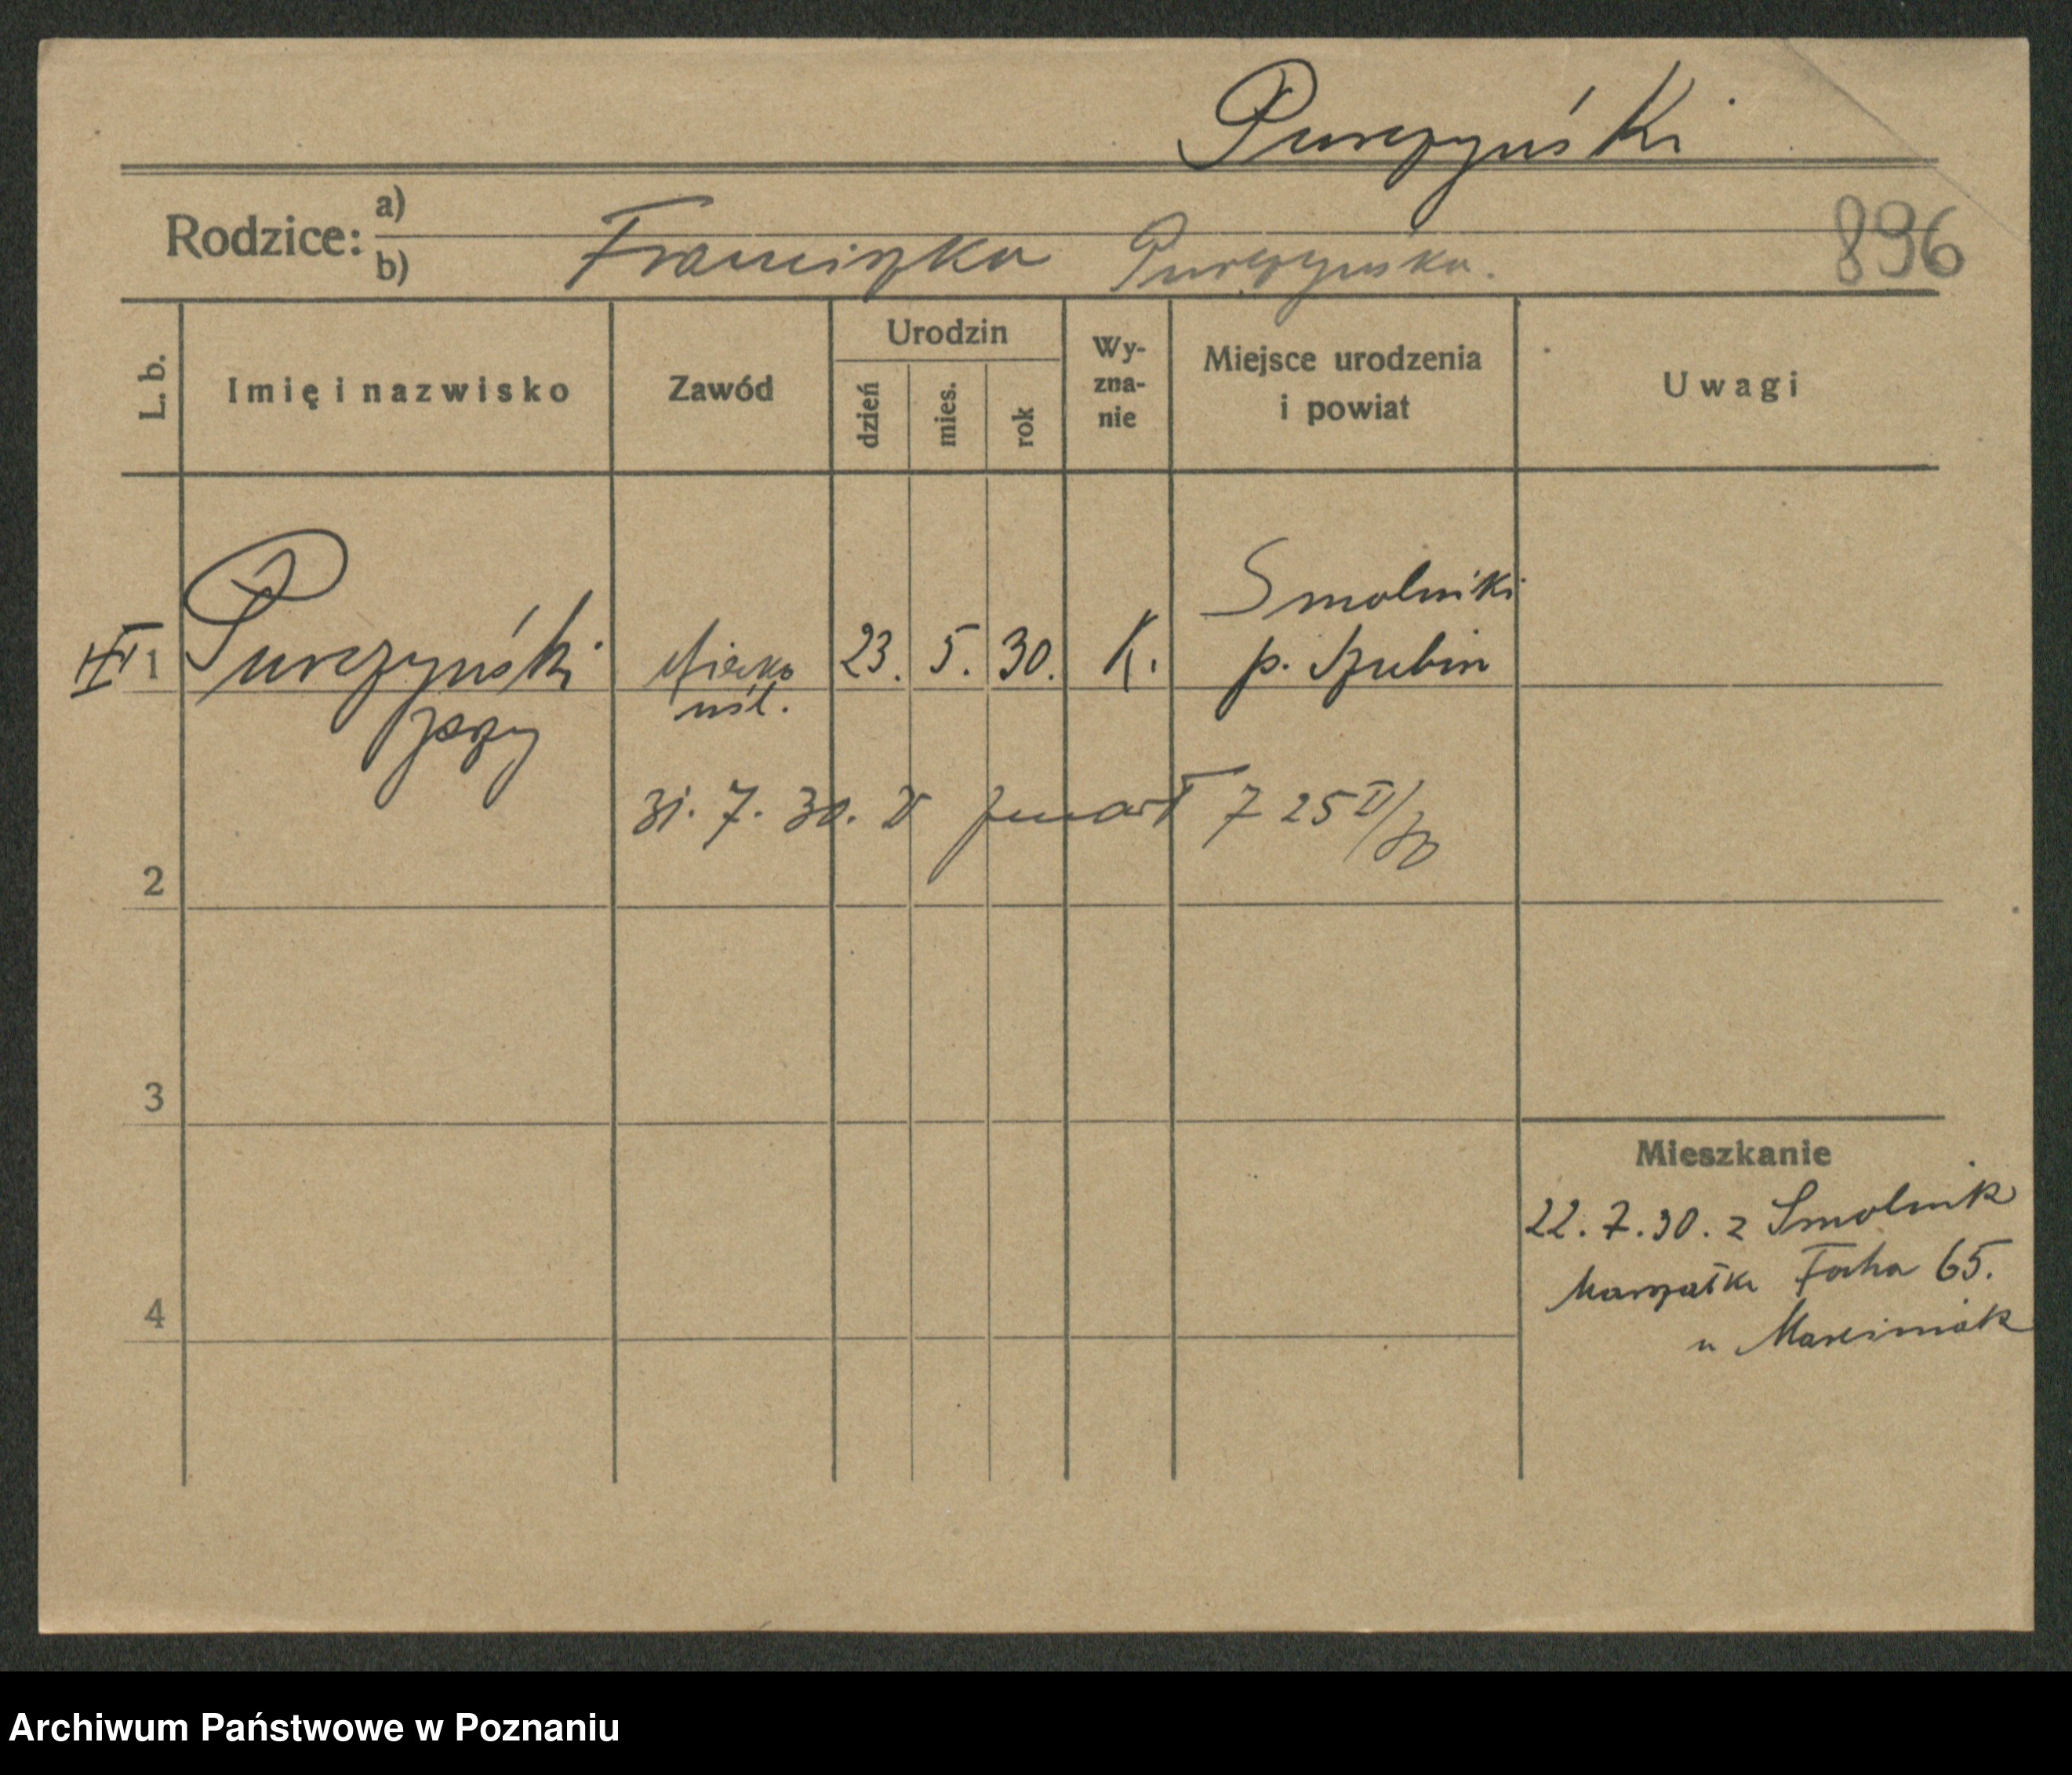 Purczyński
Rodzice: a)
b) Franciszka Purczyńska.
896
L. b.
Imię i nazwisko
Zawód
Urodzin
dzień
mies.
rok
Wy-
zna-
nie
Miejsce urodzenia
i powiat
Uwagi
1 Purczyński 23. 5. 30. K. Smolniki
p. Szubin
Jerzy
31. 7. 30. zmarł 7 25
2
3
4
Mieszkanie
22. 7. 30. z Smolnik
Marszałka Focha 65.
u Marciniak
Archiwum Państwowe w Poznaniu